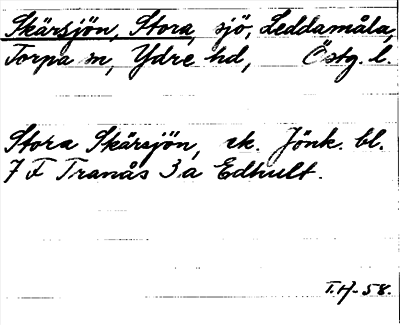 Skärsjön, Stora, sjö, Leddamåla,
Torpa sn, Ydre hd, Östg. l.
Stora Skärsjön, ek. Jönk. bl.
7 F Tranås 3 a Edhult.
T.H-58.